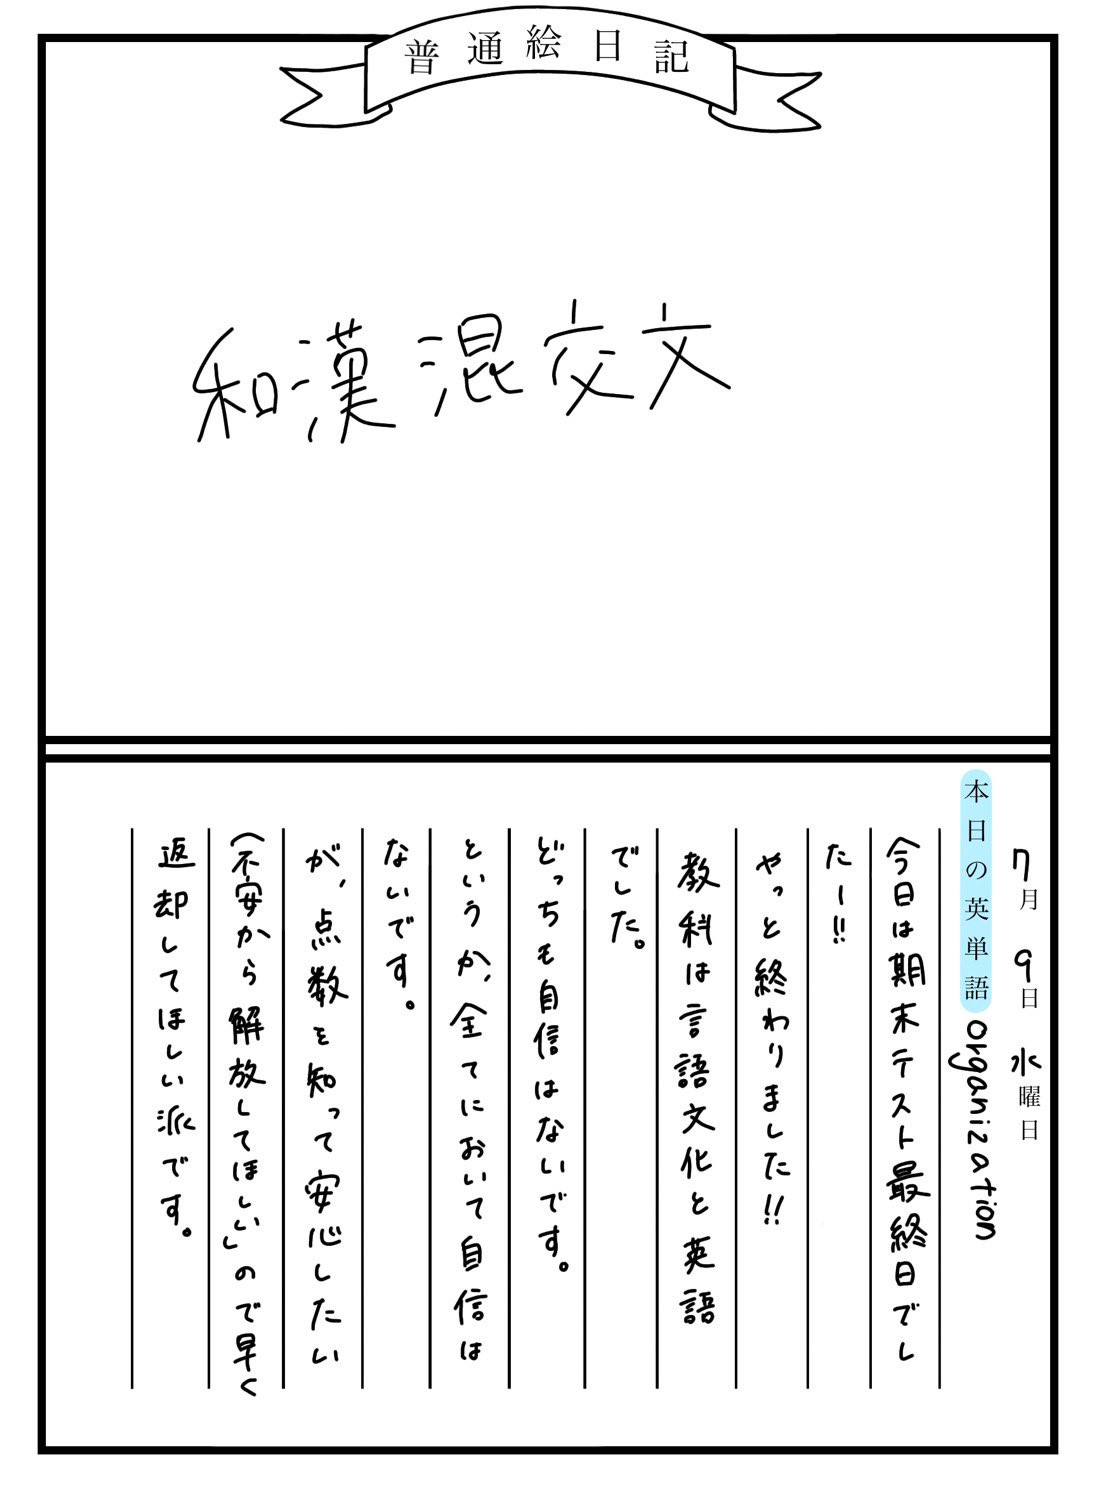 普通絵日記
和漢混交文
7月9日水曜日
本日の英単語 organization
今日は期末テスト最終日でし
たー!!
やっと終わりました!!
教科は言語文化と英語
でした。
どっちも自信はないです。
というか、全てにおいて自信は
ないです。
が、点数を知って安心したい
(不安から解放してほしい)ので早く
返却してほしい派です。